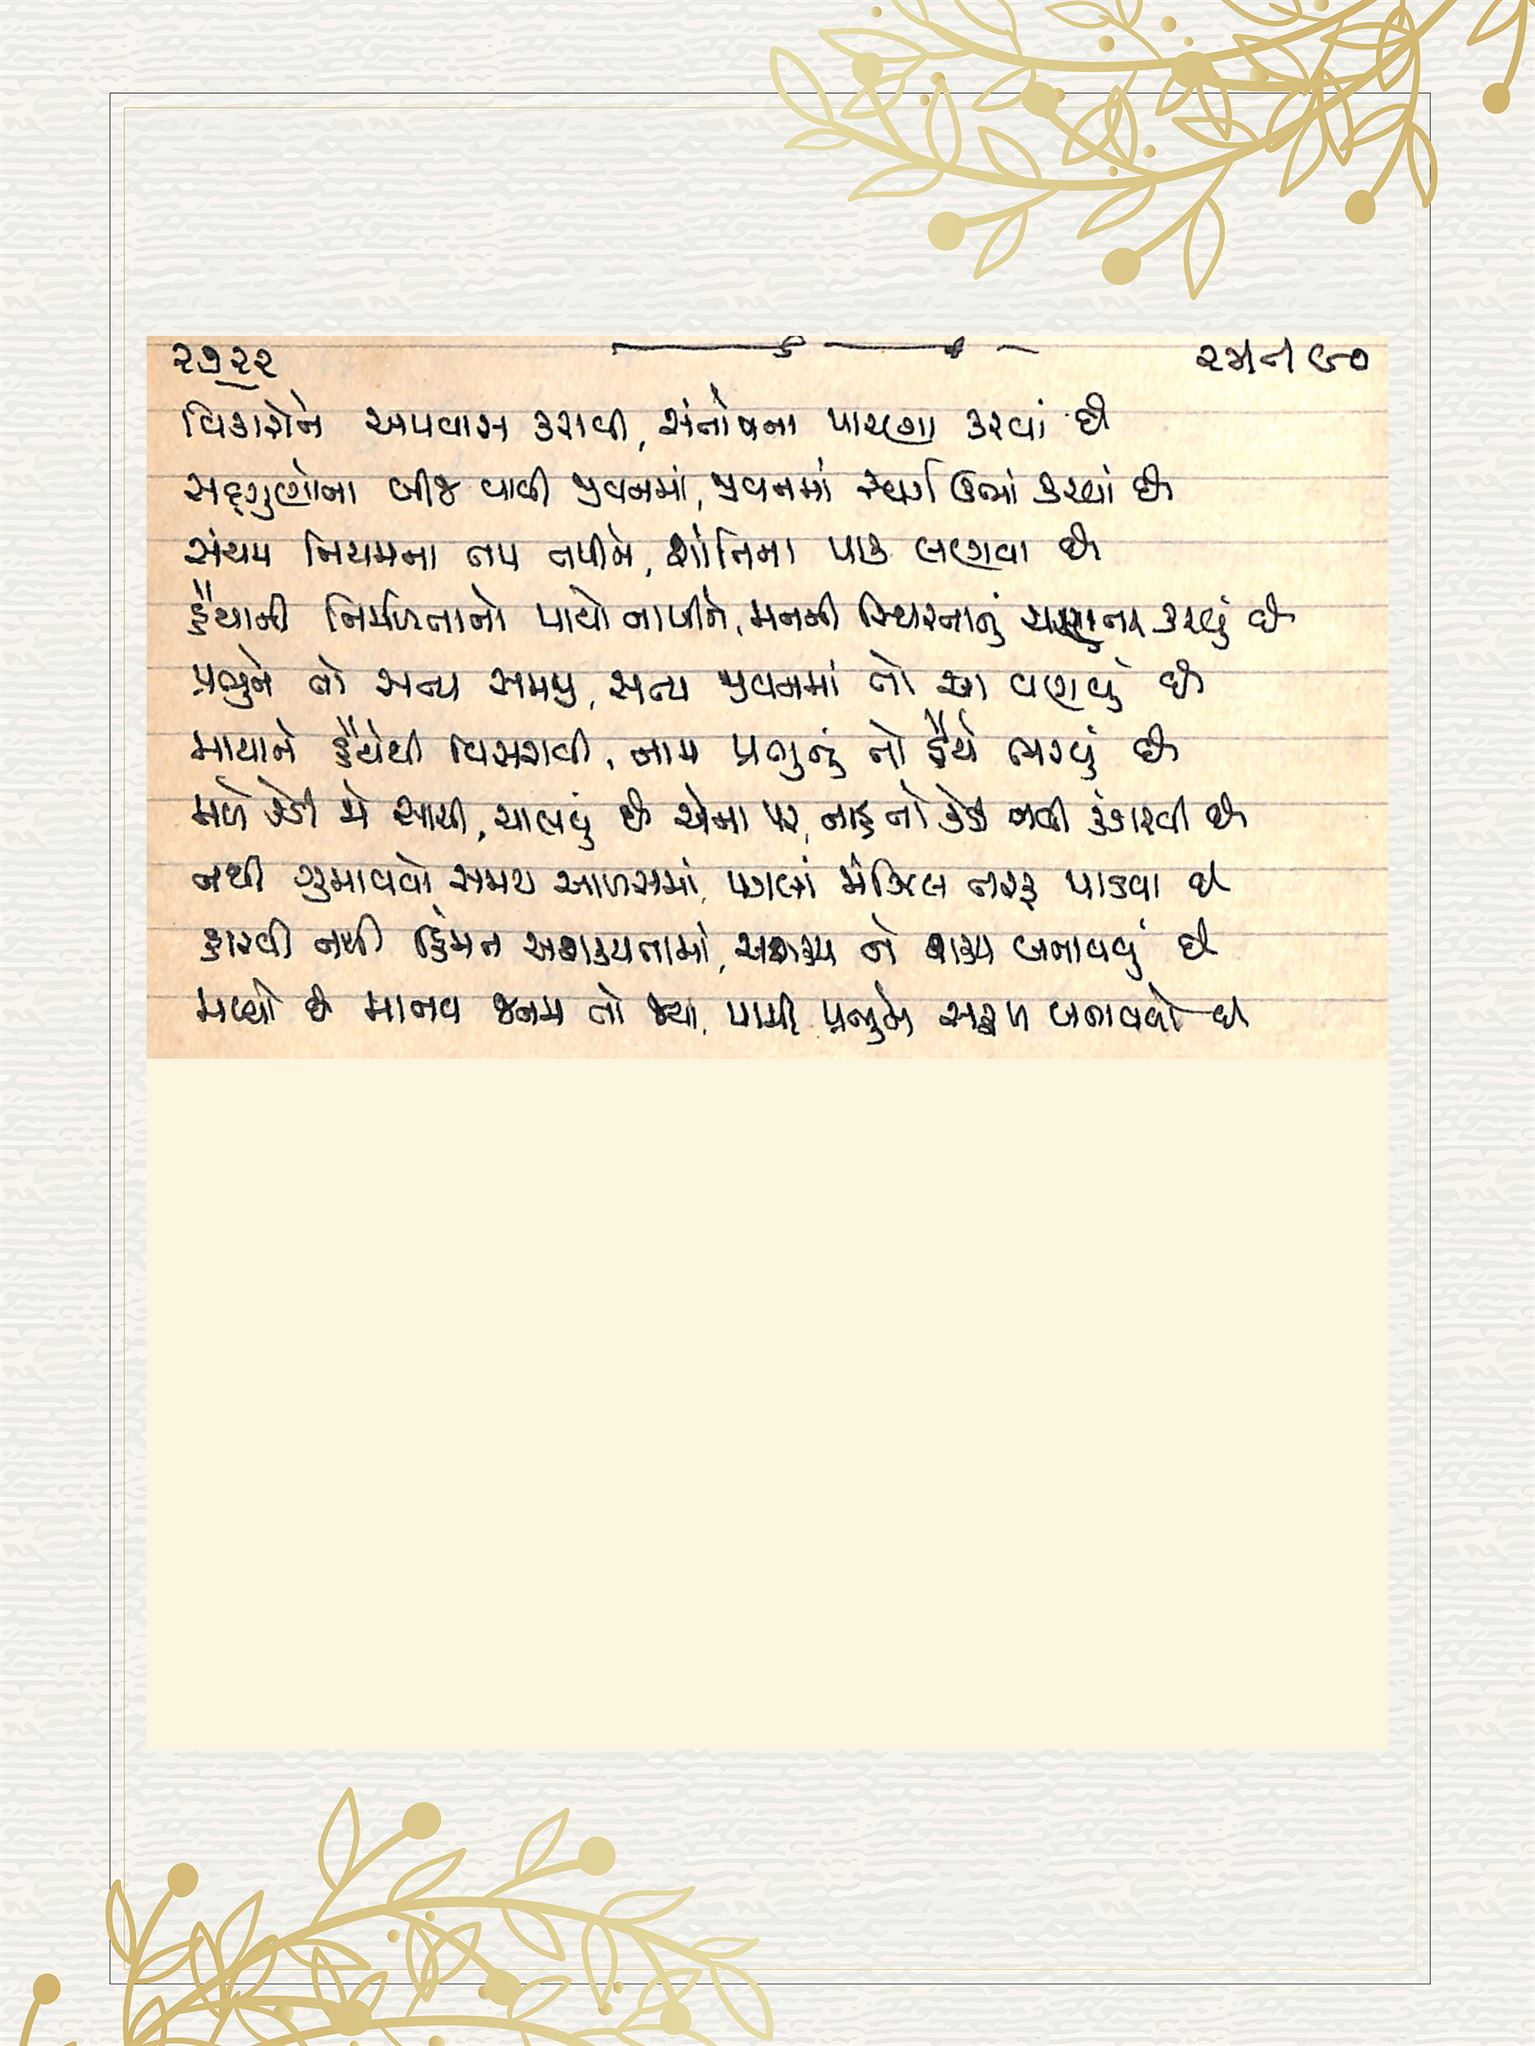 ૨૭૨૨
વિકારોને અપવાસ કરાવી, સંતોષના પારણા કરવાં છે
સદ્ગુણોના બીજ વાવી જીવનમાં, જીવનમાં સ્વર્ગ ઊભાં કરવાં છે
સંયમ નિયમના તપ તપીને, શાંતિના પાઠ ભણવા છે
હૈયાની નિર્મળતાનો પાયો નાખીને, મનની સ્થિરતાનું ચણતર કરવું છે
પ્રભુને તો સત્ય સમજી, સત્ય જીવનમાં તો આ વણવું છે
માયાને હૈયેથી વિસરાવી, નામ પ્રભુનું તો હૈયે ભરવું છે
મળે કેડી જે સાચી, ચાલવું છે એના પર, નાહક તો કેડી નવી કંડારવી છે
નથી ગુમાવવો સમય આળસમાં, પગલાં મંઝિલ તરફ પાડવા છે
હારવી નથી હિંમત અશક્યતામાં, અશક્ય ને શક્ય બનાવવું છે
મળ્યો છે માનવ જનમ તો જ્યાં, પામી પ્રભુને સફળ બનાવવો છે